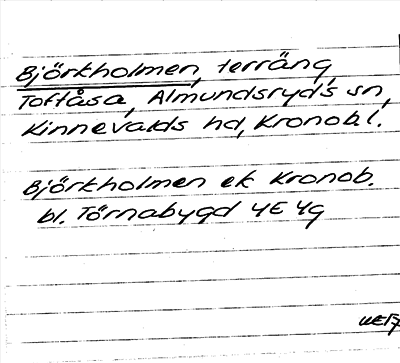 Björkholmen, terräng,
Toftåsa, Almundsryds sn,
Kinnevalds hd, Kronobl.
Björkholmen ek Kronob.
bl. Törnabygd 4E 4g